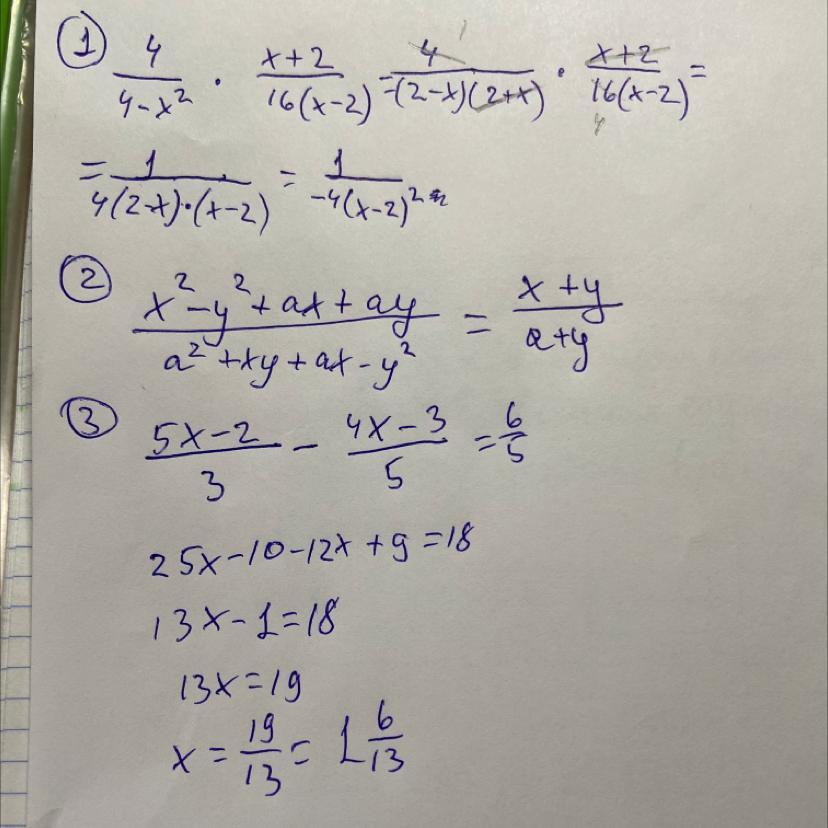 ① 4/(4-x²) · (x+2)/(16(x-2)) = 4/((2-x)(2+x)) · (x+2)/(16(x-2)) =
= 1/(4(2-x)·(x-2)) = 1/(-4(x-2)²)
② (x²-y²+ax+ay)/(a²+xy+ax-y²) = (x+y)/(a+y)
③ (5x-2)/3 - (4x-3)/5 = 6/5
25x-10-12x+9=18
13x-1=18
13x=19
x = 19/13 = 1 6/13